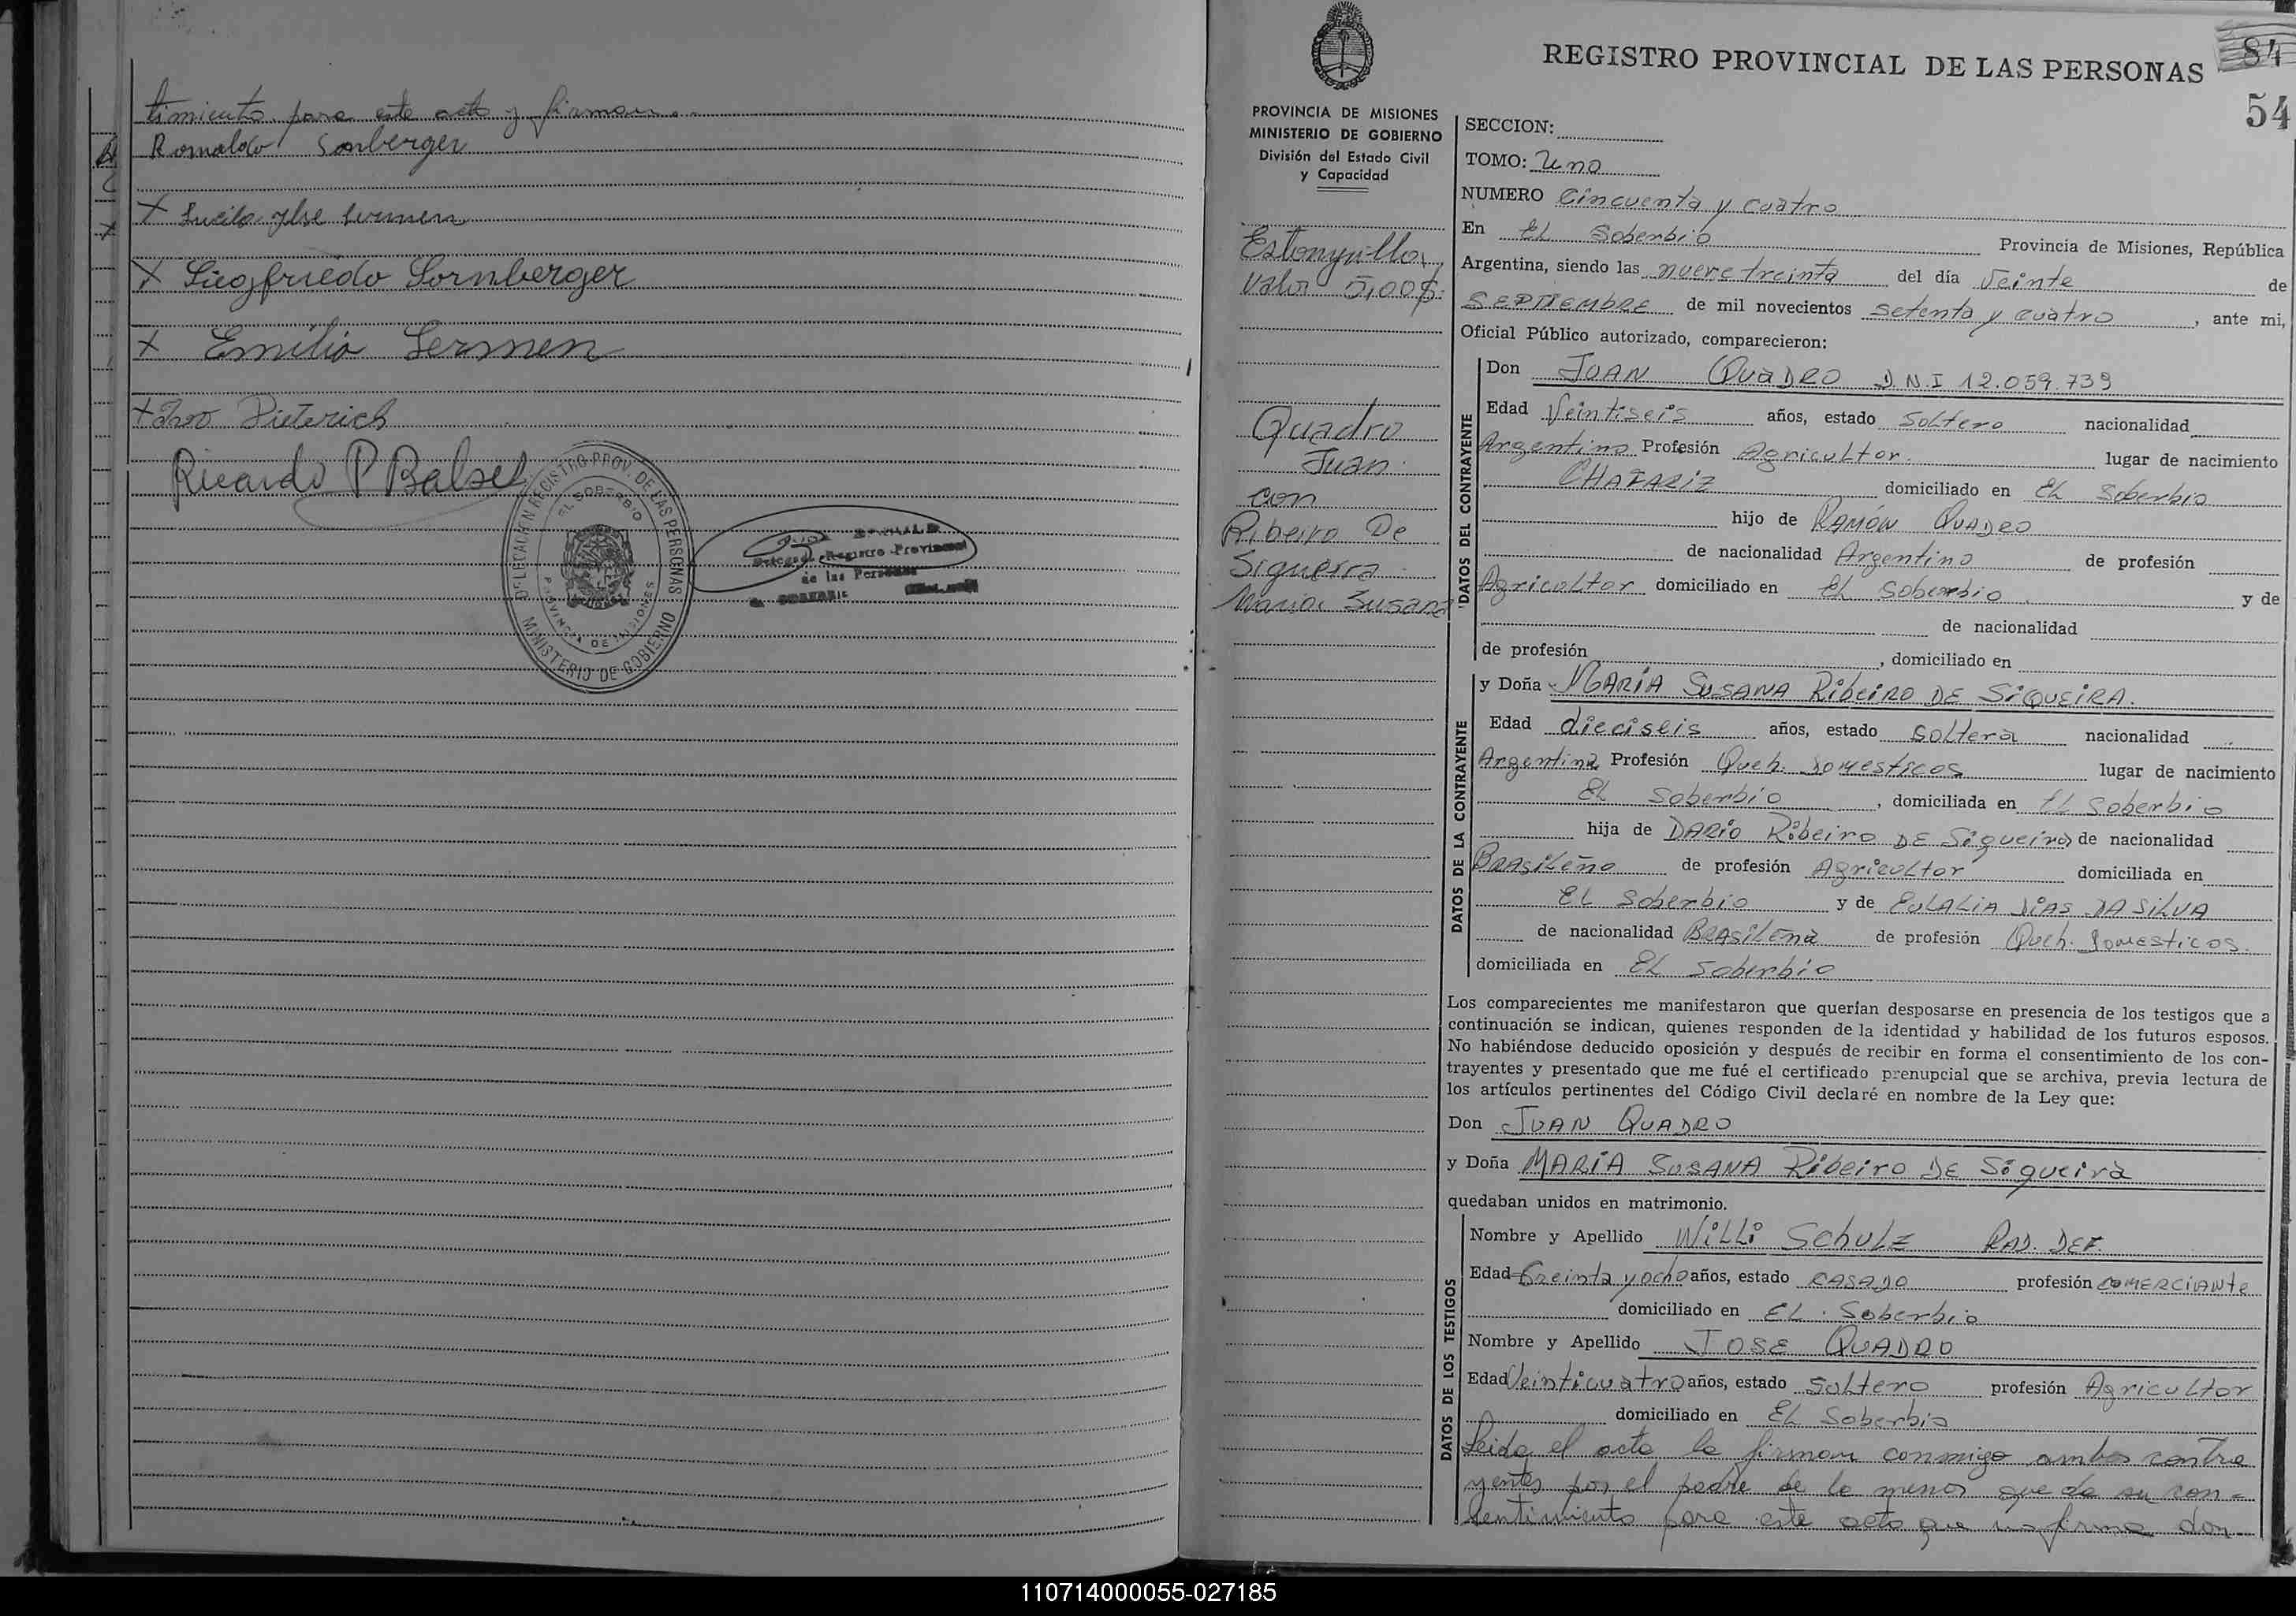 timiento para este acto y firman.-
Romaldo Sonberger
X Lucila Ylse Lermen
X Siegfriedo Sornberger
X Emilio Lermen
+ Ivo Dieterich
Ricardo P Balset
DELEGACIÓN REGISTRO PROV. DE LAS PERSONAS
EL SOBERBIO
PROVINCIA DE MISIONES
MINISTERIO DE GOBIERNO
Registro Provincial
de las Personas
84
REGISTRO PROVINCIAL DE LAS PERSONAS
54
PROVINCIA DE MISIONES
MINISTERIO DE GOBIERNO
División del Estado Civil
y Capacidad
Estampilla
Valor 5,00$
Quadro
Juan
con
Ribeiro De
Siqueira
Maria Susana
SECCION:
TOMO: Uno
NUMERO Cincuenta y cuatro
En El Soberbio Provincia de Misiones, República
Argentina, siendo las nueve treinta del día Veinte de
SEPTIEMBRE de mil novecientos setenta y cuatro, ante mi,
Oficial Público autorizado, comparecieron:
DATOS DEL CONTRAYENTE
Don JUAN QUADRO D.N.I 12.059.739
Edad Veintiseis años, estado Soltero nacionalidad
Argentina Profesión Agricultor. lugar de nacimiento
CHAFARIZ domiciliado en El Soberbio
hijo de RAMÓN QUADRO
de nacionalidad Argentino de profesión
Agricultor domiciliado en El Soberbio y de
de nacionalidad
de profesión , domiciliado en
DATOS DE LA CONTRAYENTE
y Doña MARÍA SUSANA RIBEIRO DE SIQUEIRA.
Edad dieciseis años, estado Soltera nacionalidad
Argentina Profesión Queh. Domesticos lugar de nacimiento
El Soberbio, domiciliada en El Soberbio
hija de DARIO Ribeiro DE Siqueira de nacionalidad
BRASILEÑO de profesión Agricultor domiciliada en
El Soberbio y de EULALIA DIAS DA SILVA
de nacionalidad BRASILEÑA de profesión Queh. Domesticos.
domiciliada en El Soberbio
Los comparecientes me manifestaron que querían desposarse en presencia de los testigos que a
continuación se indican, quienes responden de la identidad y habilidad de los futuros esposos.
No habiéndose deducido oposición y después de recibir en forma el consentimiento de los con-
trayentes y presentado que me fué el certificado prenupcial que se archiva, previa lectura de
los artículos pertinentes del Código Civil declaré en nombre de la Ley que:
Don JUAN QUADRO
y Doña MARÍA SUSANA Ribeiro DE Siqueira
quedaban unidos en matrimonio.
DATOS DE LOS TESTIGOS
Nombre y Apellido WILLI SCHULZ RAD. DEF.
Edad treinta y ocho años, estado CASADO profesión COMERCIANTE
domiciliado en EL. Soberbio
Nombre y Apellido JOSE QUADRO
Edad Veinticuatro años, estado Soltero profesión Agricultor
domiciliado en El Soberbio
Leida el acta la firman conmigo ambos contra
yentes por el padre de la menor que da su con-
sentimiento para este acto que no firma don-
110714000055-027185